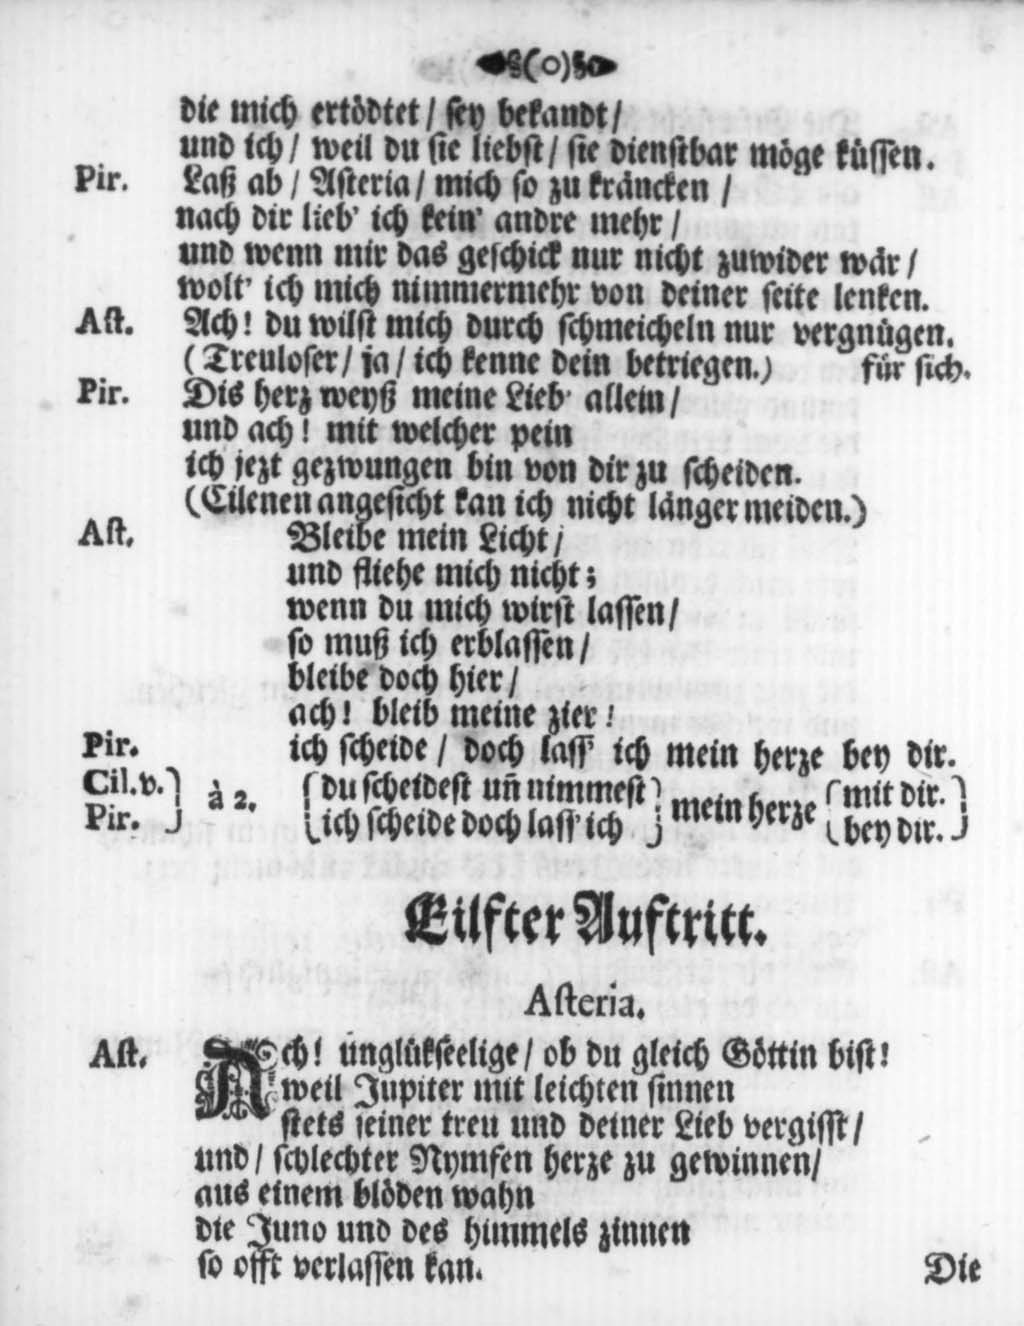 (o)
die mich ertödtet / sey bekandt /
und ich / weil du sie liebst / sie dienstbar möge küssen.
Pir. Laß ab / Asteria / mich so zu kräncken /
nach dir lieb' ich kein' andre mehr /
und wenn mir das geschick nur nicht zuwider wär /
wolt' ich mich nimmermehr von deiner seite lenken.
Ast. Ach! du wilst mich durch schmeicheln nur vergnügen.
(Treuloser / ja / ich kenne dein betriegen.) für sich.
Pir. Dis herz weyß meine Lieb' allein /
und ach! mit welcher pein
ich jezt gezwungen bin von dir zu scheiden.
(Cilenen angesicht kan ich nicht länger meiden.)
Ast. Bleibe mein Licht /
und fliehe mich nicht;
wenn du mich wirst lassen /
so muß ich erblassen /
bleibe doch hier /
ach! bleib meine zier!
Pir. ich scheide / doch lass' ich mein herze bey dir.
Cil.v.} à 2. {du scheidest uñ nimmest} mein herze {mit dir.}
Pir. } {ich scheide doch lass' ich } {bey dir.}
Eilfter Auftritt.
Asteria.
Ast. Ach! unglükseelige / ob du gleich Göttin bist!
weil Jupiter mit leichten sinnen
stets seiner treu und deiner Lieb vergisst /
und / schlechter Nymfen herze zu gewinnen /
aus einem blöden wahn
die Juno und des himmels zinnen
so offt verlassen kan.
Die